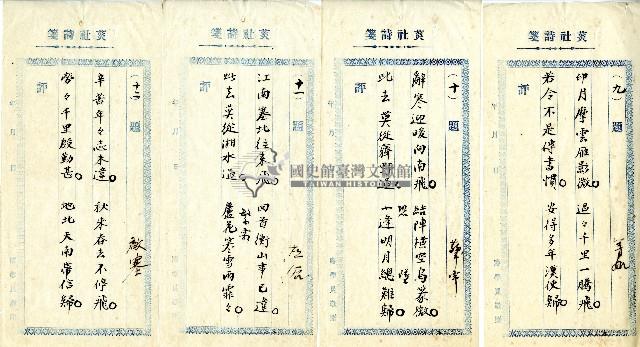 箋詩社萸
(九)
題
評
年 月 日
印月摩雲雁影微 迢々千里一騰飛
若令不是傳書慣 安得多年漢使歸
箋詩社萸
(十)
題
評
年 月 日
解寒迎暖向南飛 結陣橫空鳥篆微
此去莫從 一逢明月總難歸
箋詩社萸
(十一)
題
評
年 月 日
江南塞北往來飛 回首衡山事已違
此去莫從湘水過 蘆花寒雪雨霏々
箋詩社萸
(十二)
題
評
年 月 日
辛苦年々志未違 秋來春去不停飛
勞々千里殷勤甚 地北天南帶信歸
國史館臺灣文獻館
TAIWAN HISTORICA